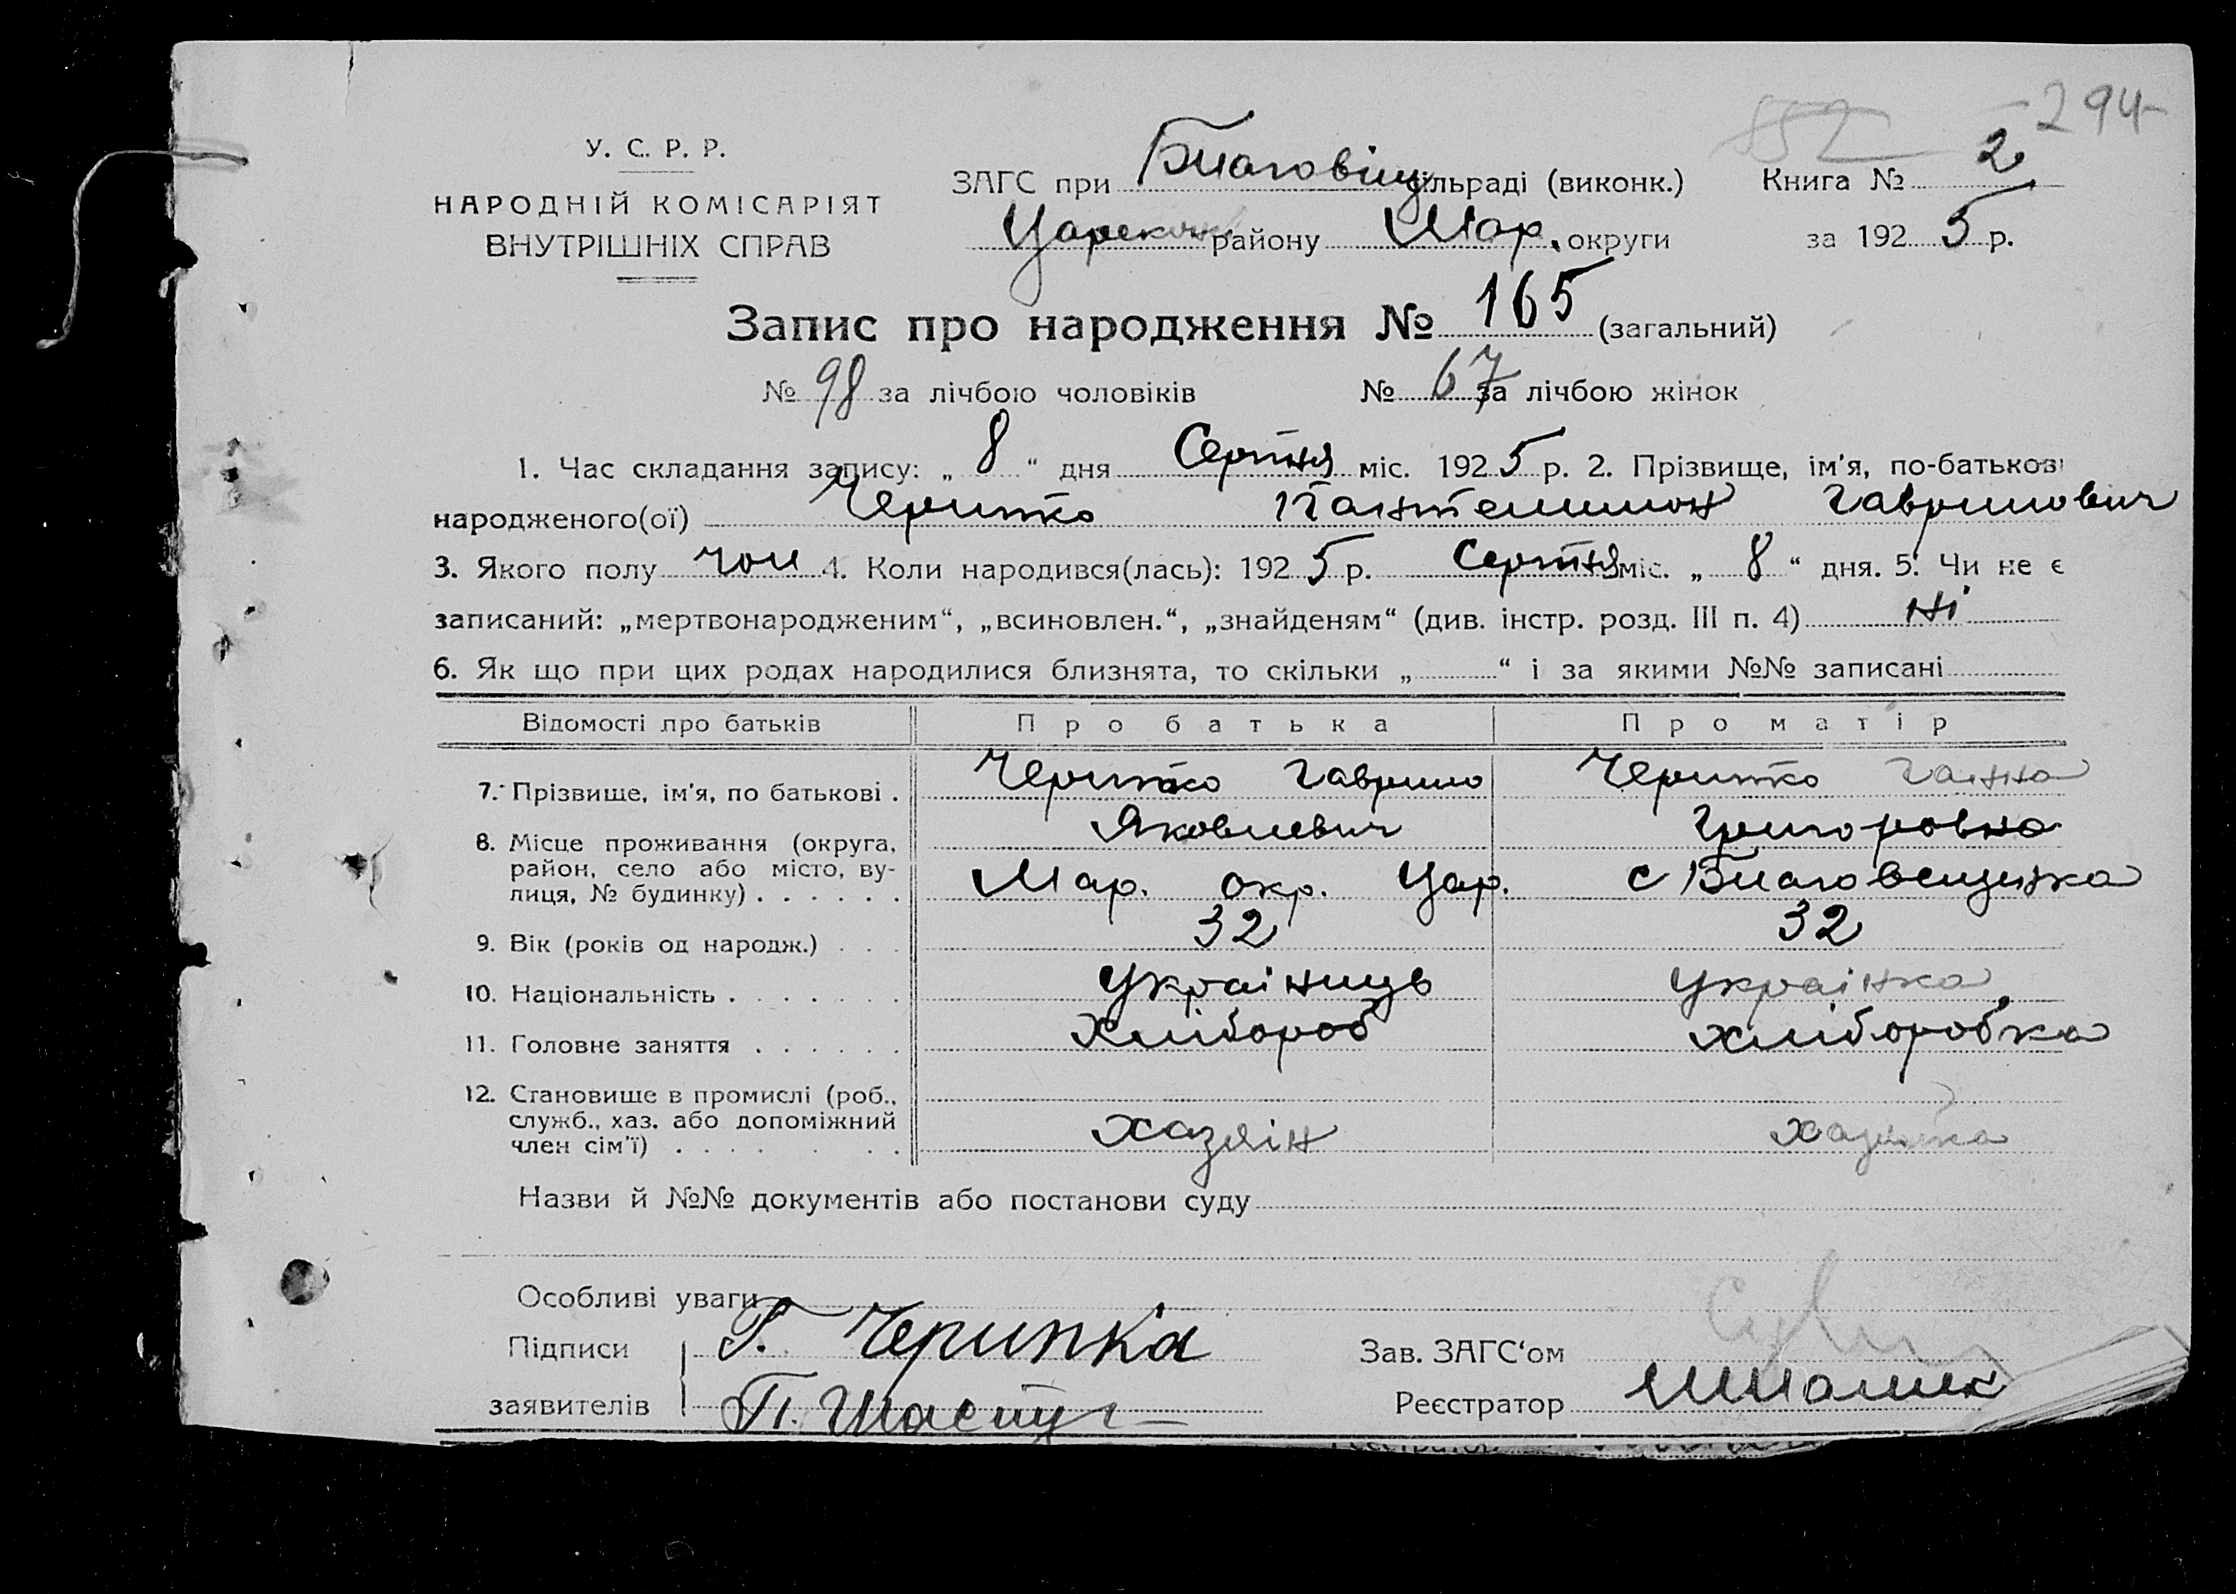 294
552
У. С. Р. Р.
НАРОДНІЙ КОМІСАРІЯТ
ВНУТРІШНІХ СПРАВ
ЗАГС при Благовіщ сільраді (виконк.) Книга № 2
Царекон району Мар. округи за 1925 р.
Запис про народження № 165 (загальний)
№ 98 за лічбою чоловіків № 67 за лічбою жінок
1. Час складання запису: „8“ дня Серпня міс. 1925 р. 2. Прізвище, ім'я, по-батькові
народженого(ої) Черипко Пантелимон Гаврилович
3. Якого полу чол 4. Коли народився(лась): 1925 р. Серпня міс. „8“ дня. 5. Чи не є
записаний: „мертвонародженим“, „всиновлен.“, „знайденям“ (див. інстр. розд. III п. 4) ні
6. Як що при цих родах народилися близнята, то скільки „ “ і за якими №№ записані
Відомості про батьків Про батька Про матір
7. Прізвище, ім'я, по батькові . Черипко Гаврило Черипко Ганна
Яковлевич Григоровна
8. Місце проживання (округа,
район, село або місто, ву-
лиця, № будинку) . . . . . . Мар. окр. Цар. с Благовещенка
9. Вік (років од народж.) . . . 32 32
10. Національність . . . . . . . Украінець Украінка
11. Головне заняття . . . . . . Хлібороб хліборобка
12. Становище в промислі (роб.,
служб., хаз. або допоміжний
член сім'ї) . . . . . . . . хазяін хазяйка
Назви й №№ документів або постанови суду
Особливі уваги
Підписи Г. Черипка Зав. ЗАГС‘ом
заявителів П. Реєстратор